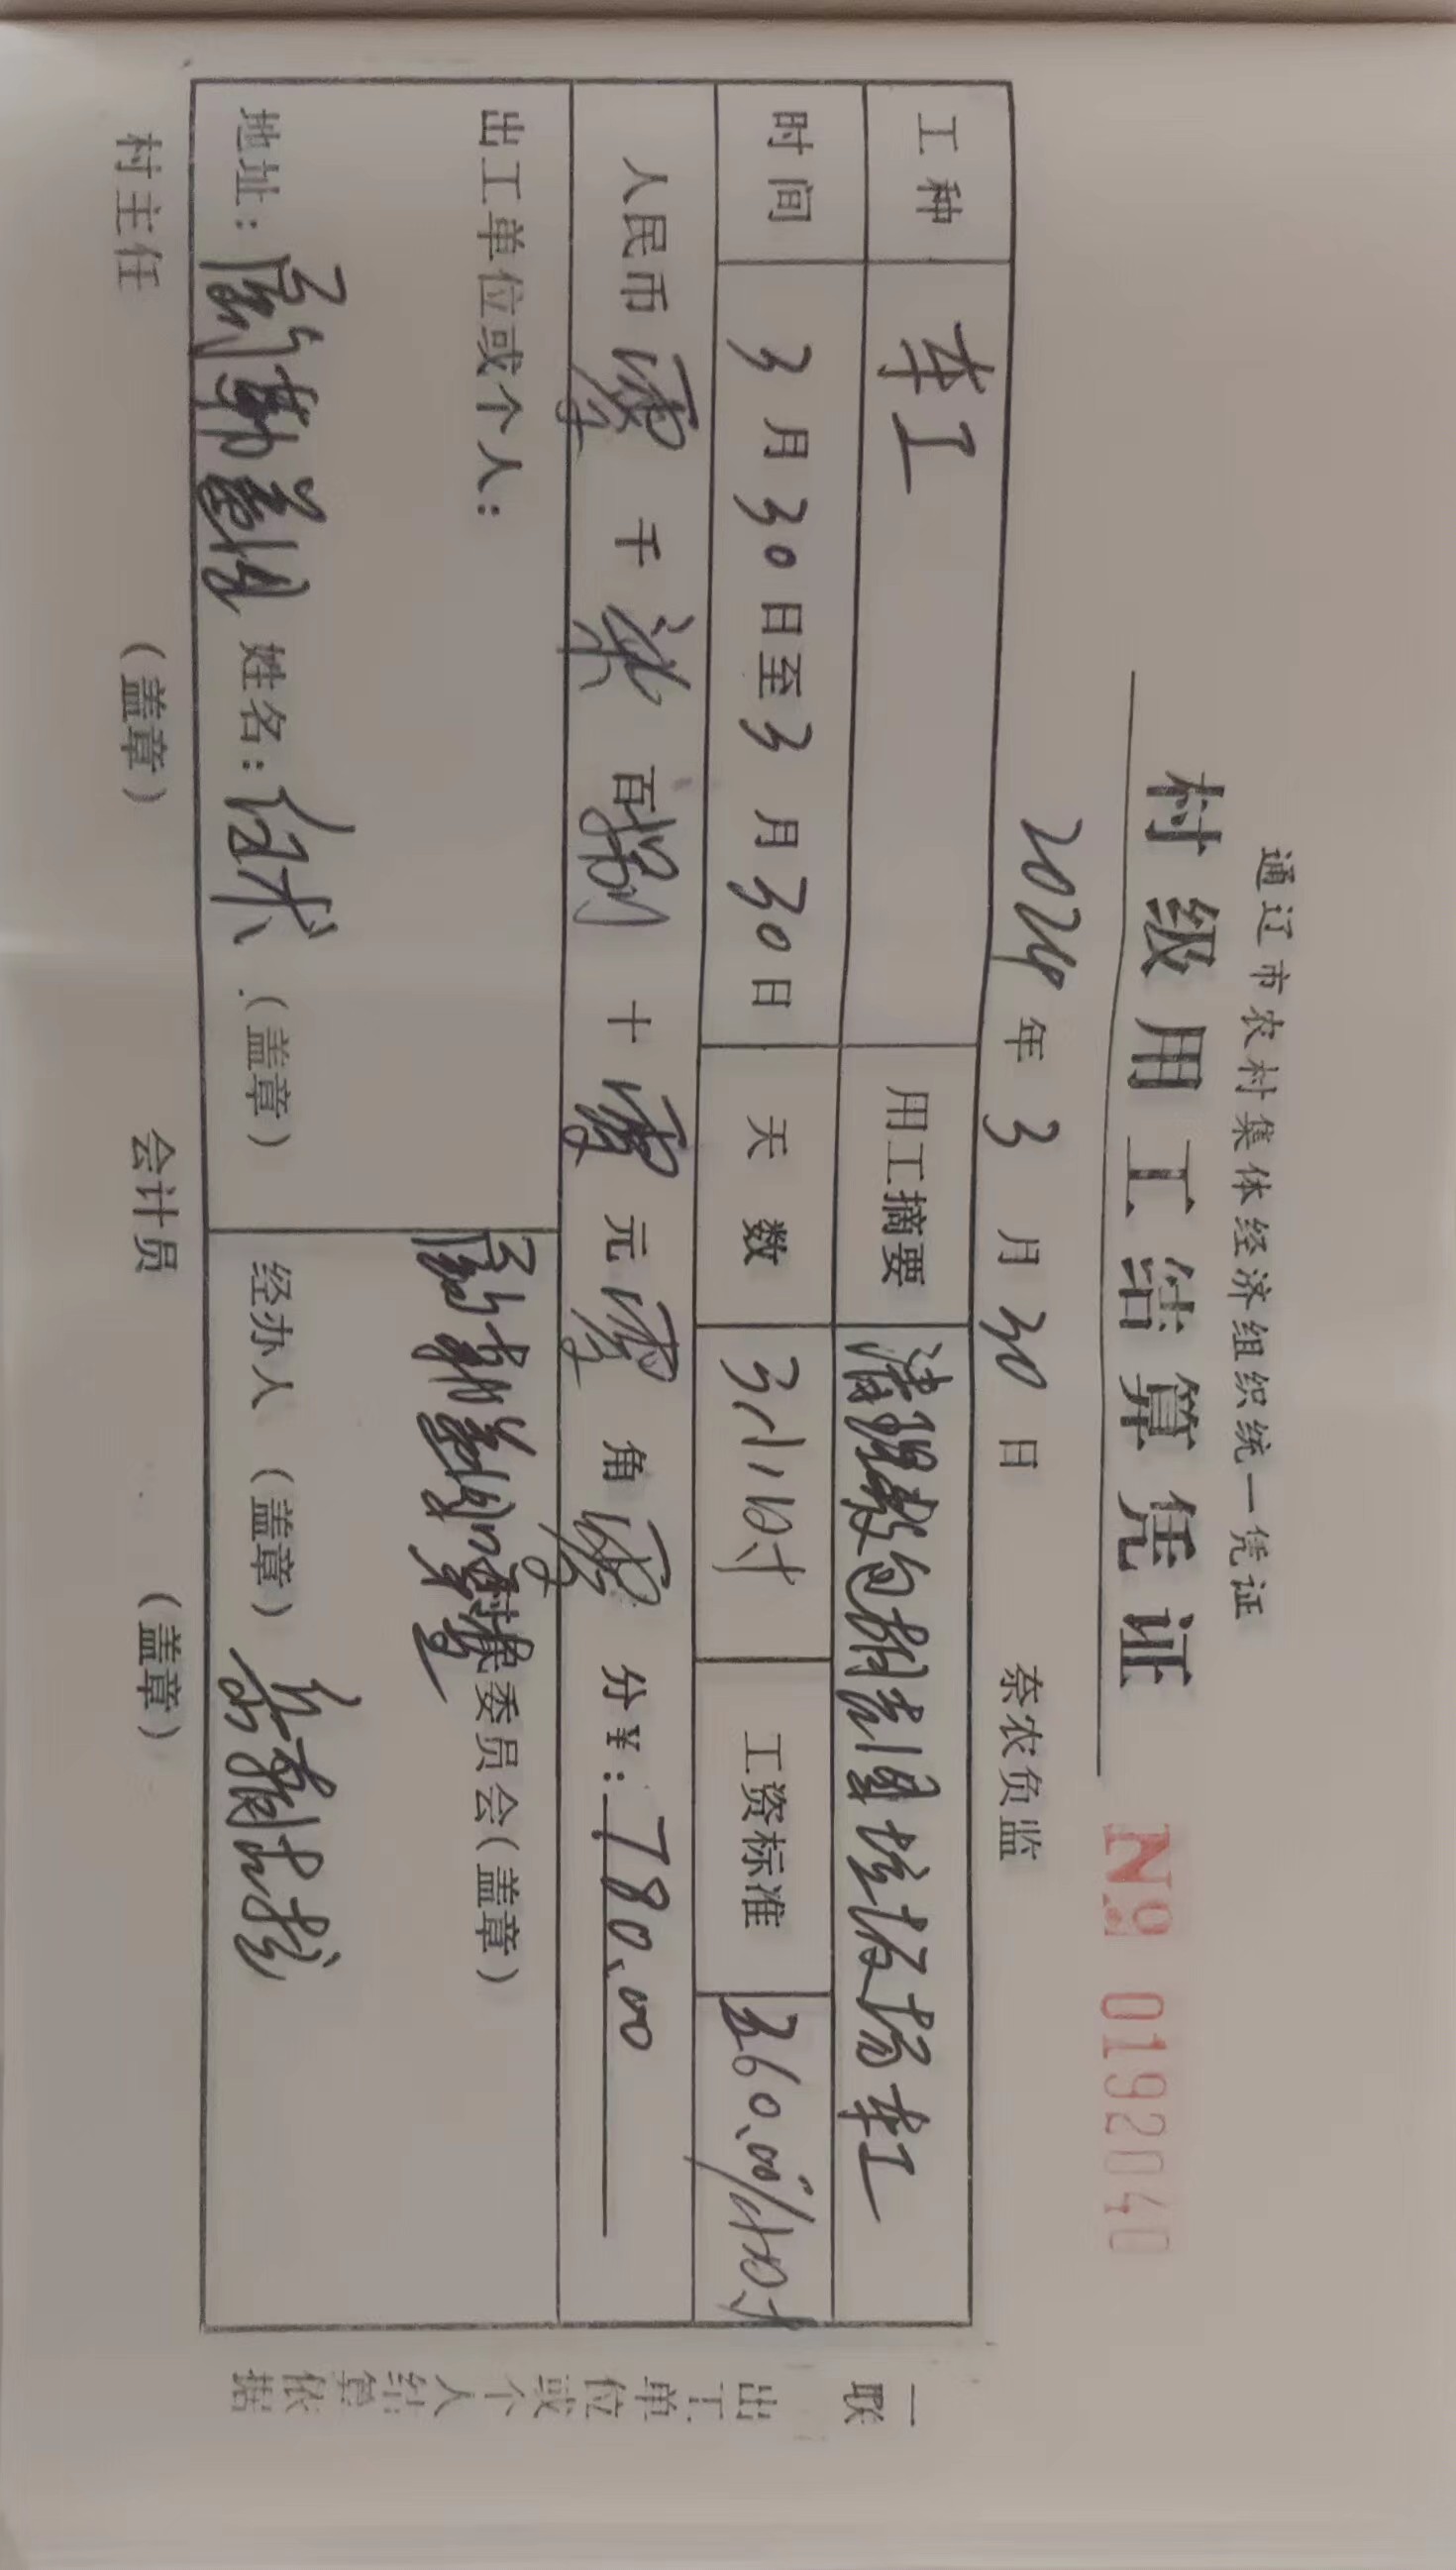 通辽市农村集体经济组织统一凭证
村级用工结算凭证
№ 0192040
2024年3月30日 奈农负监
工种 车工 用工摘要 清理 垃圾 车工
时间 3月30日至3月30日 天数 3小时 工资标准 260.00/小时
人民币 零 千 柒 百 捌 十 零 元 零 角 零 分 ¥:780.00
出工单位或个人:
村民委员会(盖章)
地址: 姓名: (盖章) 经办人(盖章)
村主任 (盖章) 会计员 (盖章)
一联
出工单位或个人结算依据